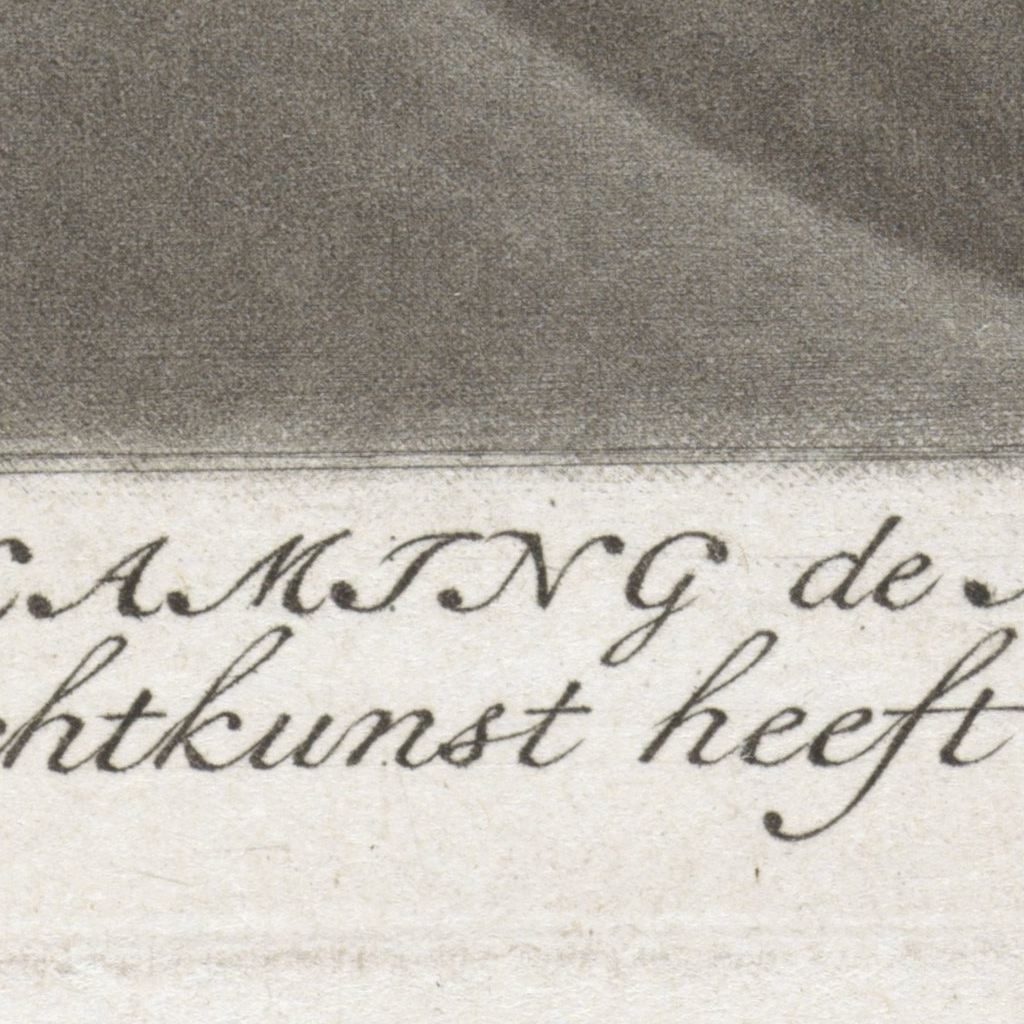 AMING de
chtkunst heeft